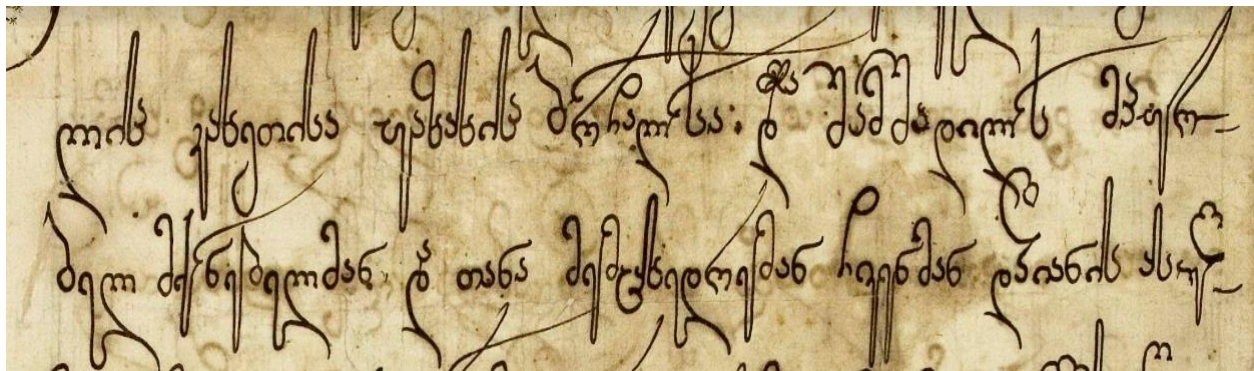 ლის კახეთისა ყაზახის ბორჩალოსა: და შამშადილოს მპყრო-
ბელ მქონებელმან და თანა მემცხედრემან ჩვენმან დადიანის ასულ-